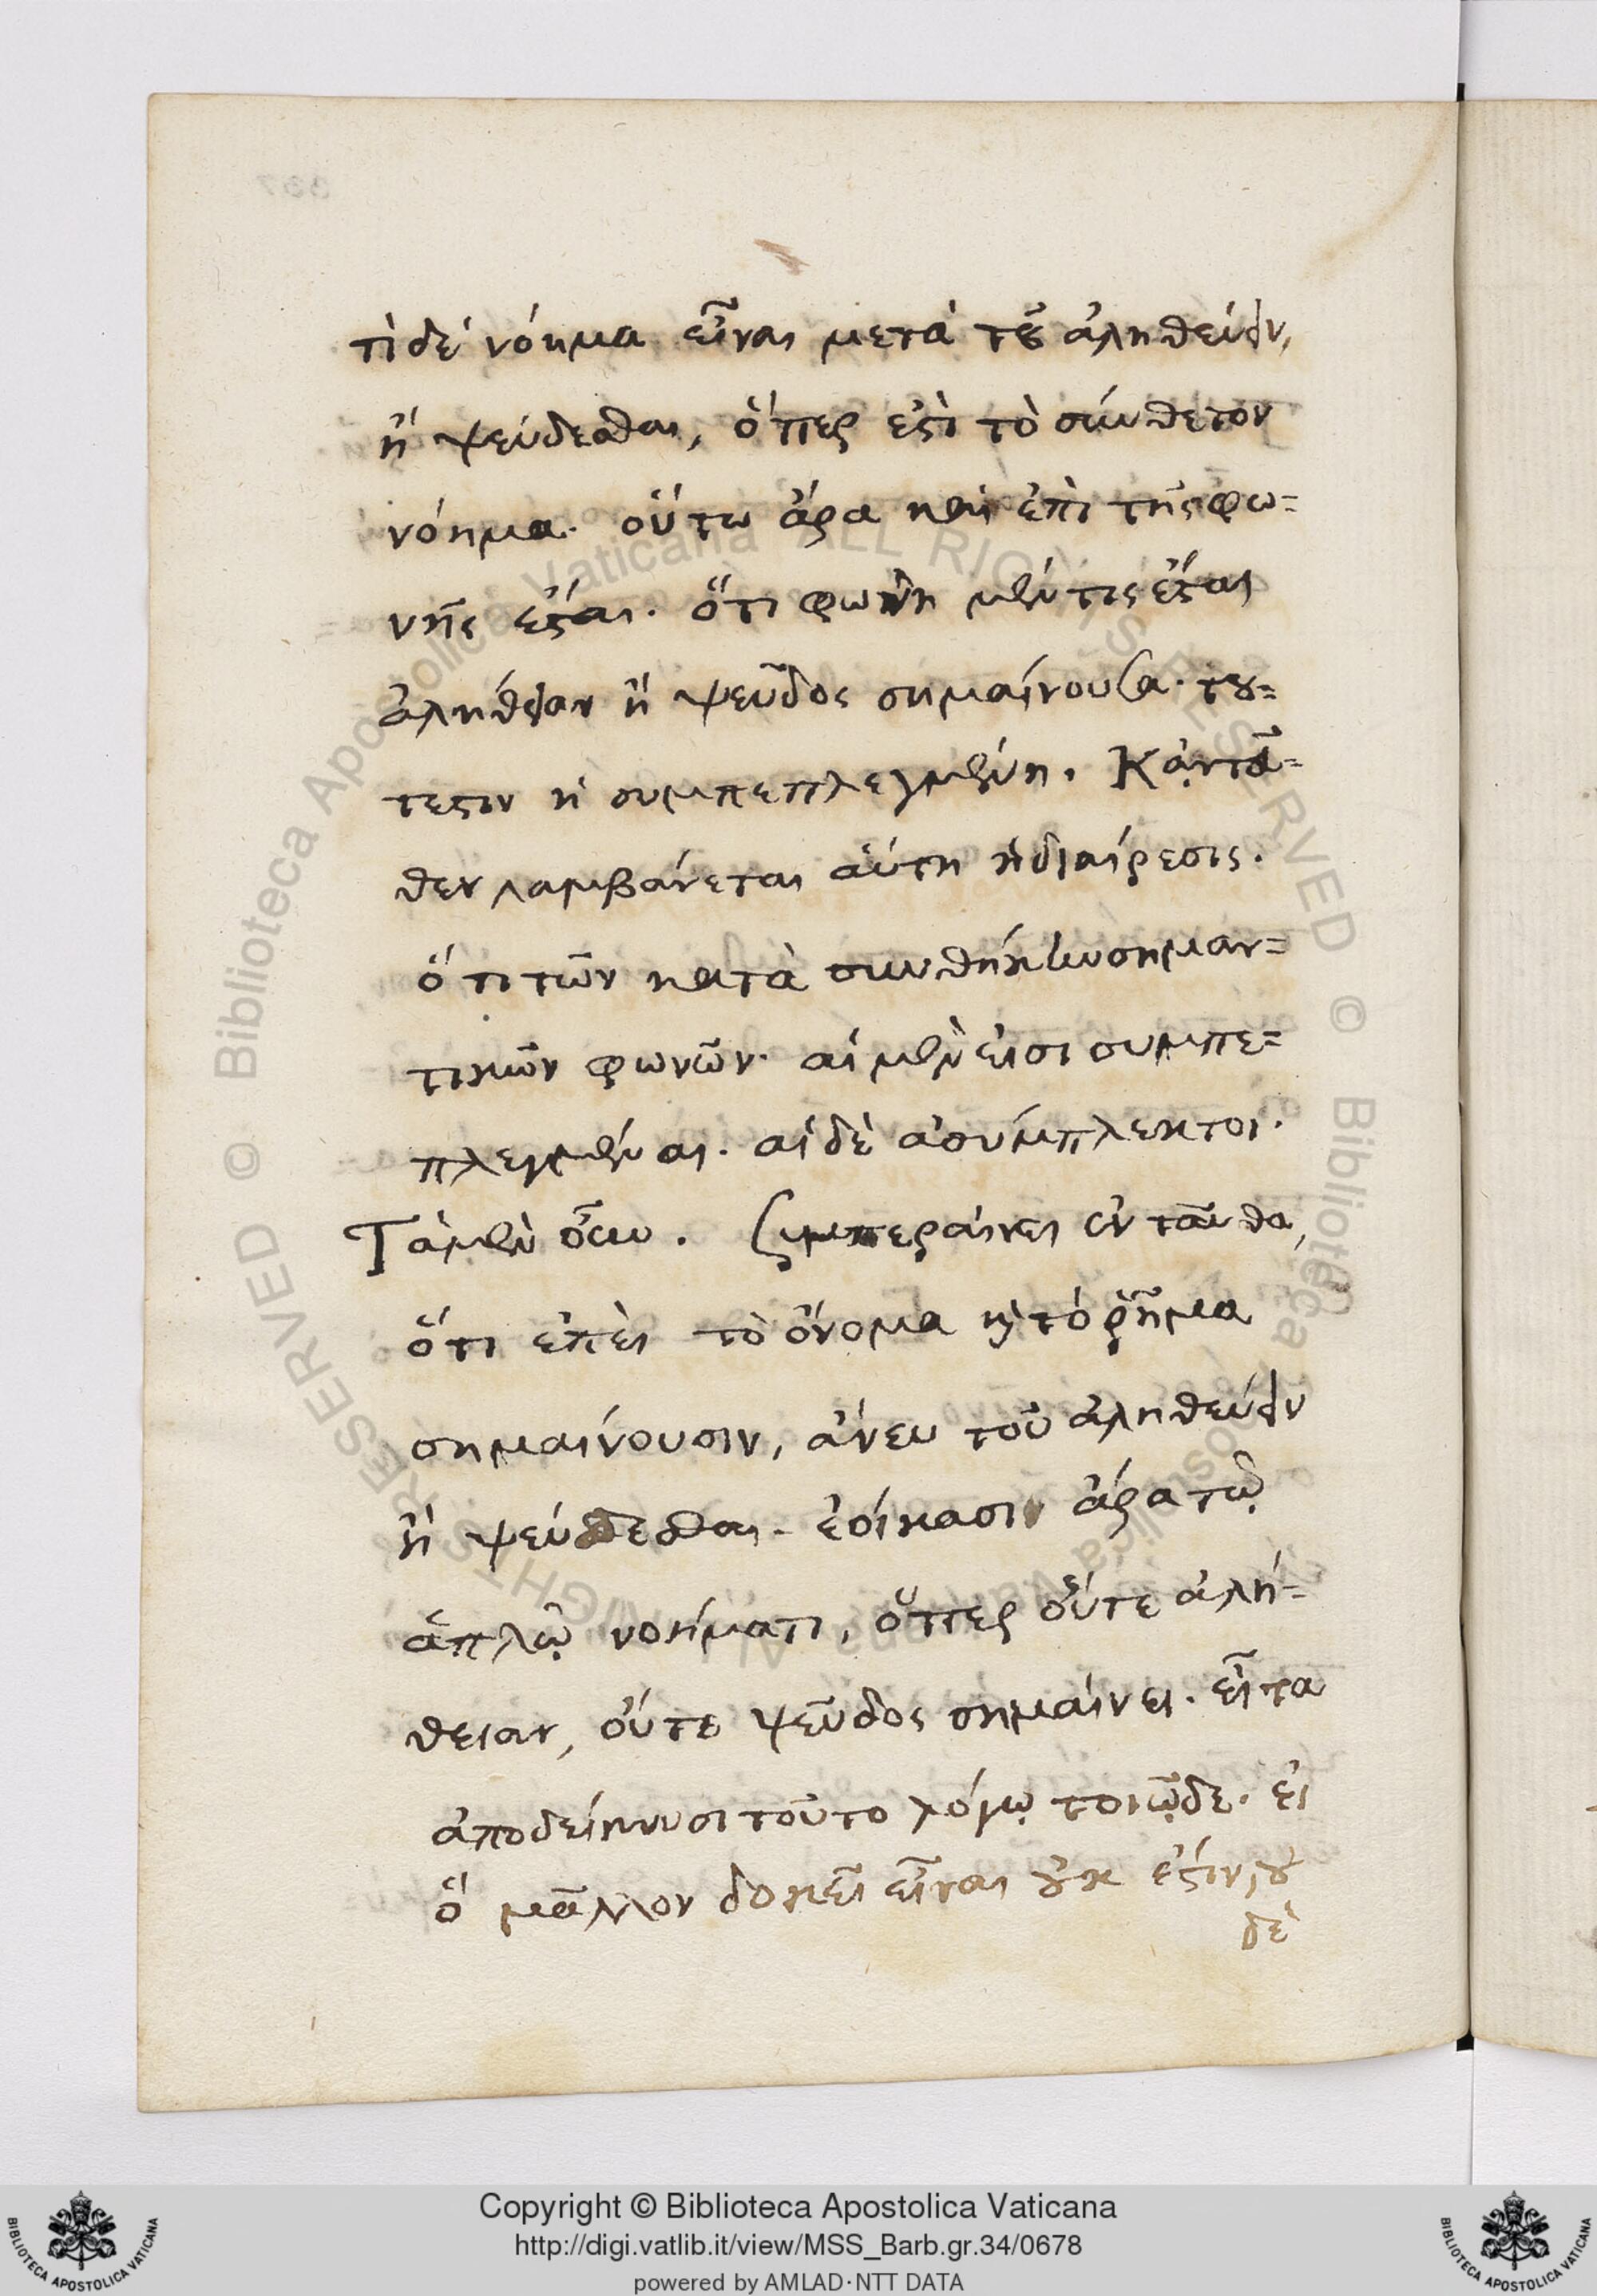 τὶ δὲ νόημα εἶναι μετὰ τοῦ ἀληθεύειν,
ἢ ψεύδεσθαι, ὅπερ ἐστὶ τὸ σύνθετον
νόημα. οὕτω ἄρα καὶ ἐπὶ τῆς φω=
νῆς ἔσται. ὅτι φωνὴ μέν τις ἔσται
ἀλήθειαν ἢ ψεῦδος σημαίνουσα. του=
τέστιν ἡ συμπεπλεγμένη. Κἀντεῦ=
θεν λαμβάνεται αὕτη ἡ διαίρεσις.
ὅτι τῶν κατὰ συνθήκην σημαν=
τικῶν φωνῶν. αἱ μὲν εἰσι συμπε=
πλεγμέναι. αἱ δὲ ἀσύμπλεκτοι.
Τὰ μὲν οὖν. Συμπεραίνει ἐνταῦθα,
ὅτι ἐπεὶ τὸ ὄνομα καὶ τὸ ῥῆμα
σημαίνουσιν, ἄνευ τοῦ ἀληθεύειν
ἢ ψεύδεσθαι. ἐοίκασιν ἄρα τῷ
ἁπλῷ νοήματι, ὅπερ οὔτε ἀλή=
θειαν, οὔτε ψεῦδος σημαίνει. εἶτα
ἀποδείκνυσι τοῦτο λόγῳ τοιῷδε. εἰ
ὃ μᾶλλον δοκεῖ εἶναι οὐκ ἔστιν, οὐ
δὲ
Copyright © Biblioteca Apostolica Vaticana
http://digi.vatlib.it/view/MSS_Barb.gr.34/0678
powered by AMLAD·NTT DATA